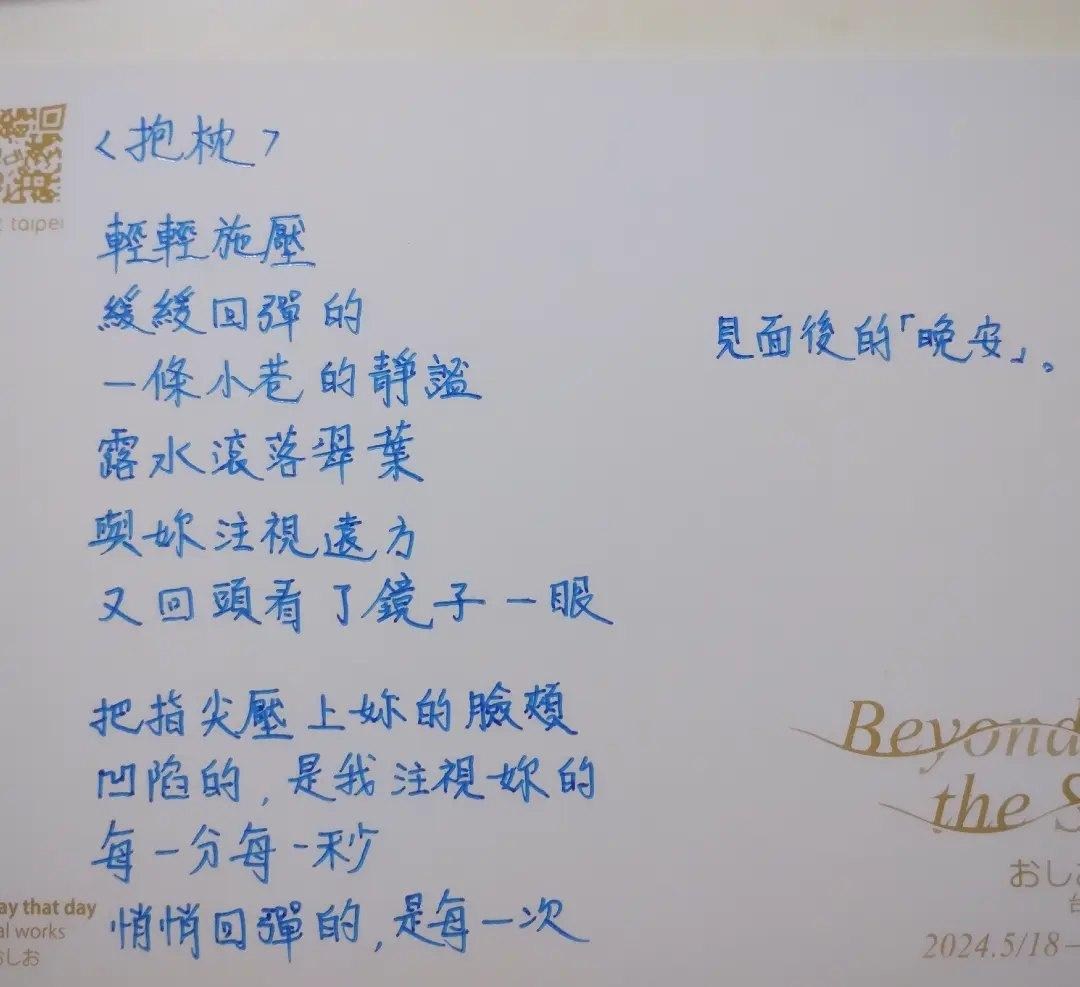 〈抱枕〉
輕輕施壓
緩緩回彈的
一條小巷的靜謐
露水滾落翠葉
與妳注視遠方
又回頭看了鏡子一眼
把指尖壓上妳的臉頰
凹陷的，是我注視妳的
每一分每一秒
悄悄回彈的，是每一次
見面後的「晚安」。
taipei
ay that day
al works
おしお
Beyond
the S
おしお
2024.5/18–